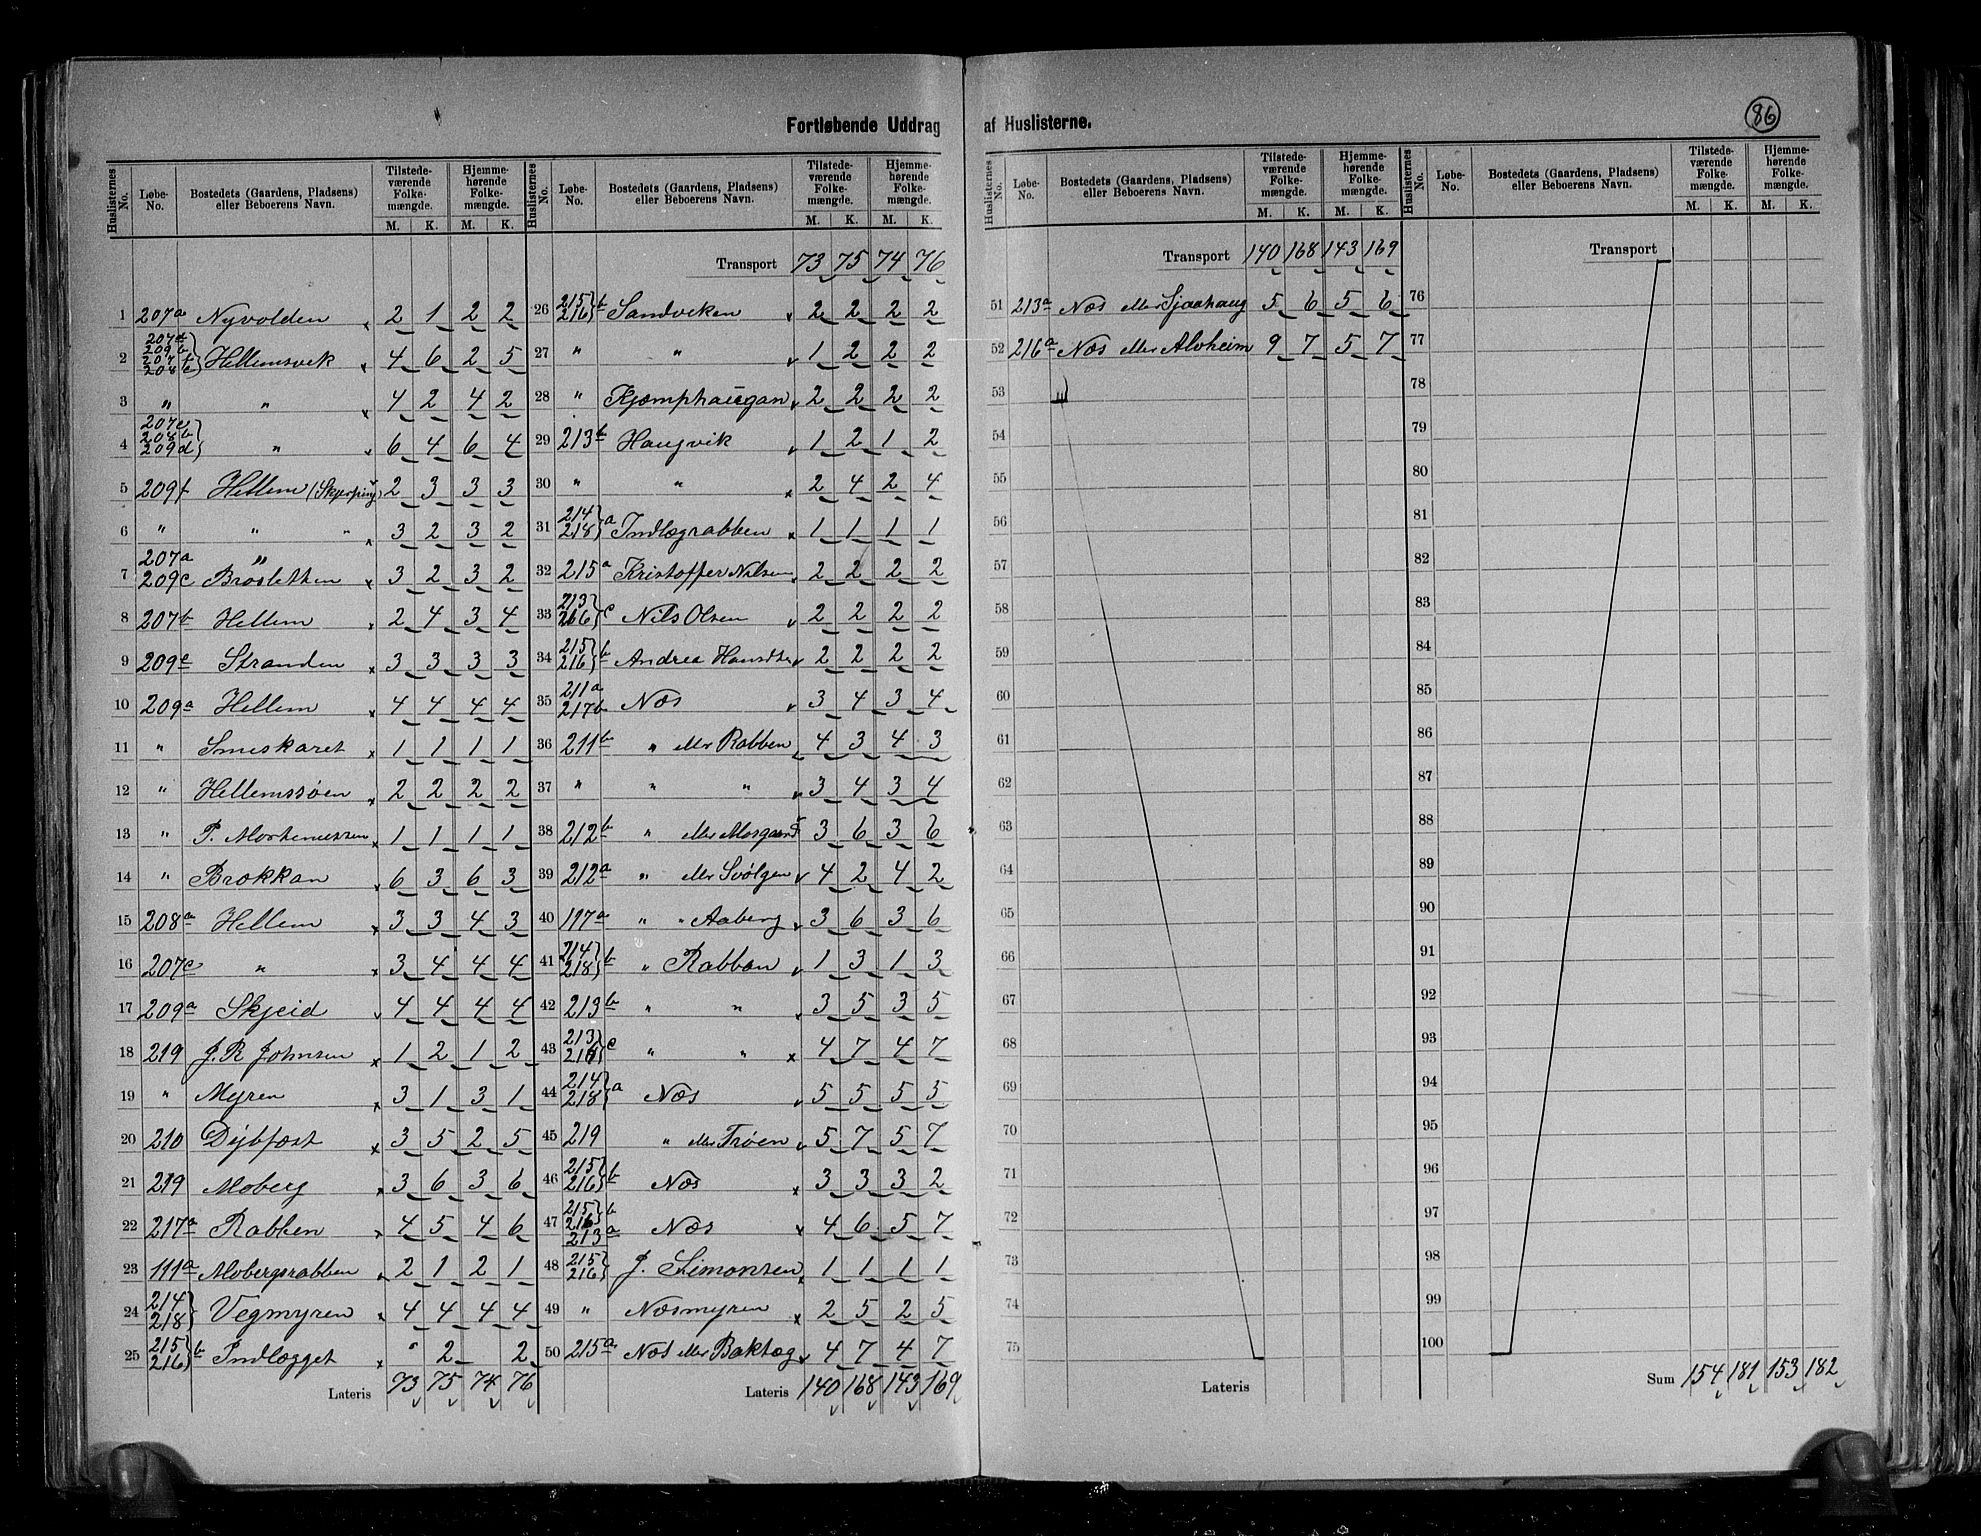 86
Fortløbende Uddrag af Huslisterne.
Huslisternes No. Løbe-No. Bostedets (Gaardens, Pladsens) eller Beboerens Navn. Tilstedeværende Folkemængde. M. K. Hjemmehørende Folkemængde. M. K.
Transport 73 75 74 76
1 207a Nyvolden 2 1 2 2
2 Hellemsvik 4 6 2 5
3 " " 4 2 4 2
4 207e 208b 209d " 6 4 6 4
5 209f Hellem (Skjerping) 2 3 3 3
6 " " " 3 2 3 2
7 207a 209c " Brosletten 3 2 3 2
8 207b Hellem 2 4 3 4
9 209e Stranden 3 3 3 3
10 209a Hellem 4 4 4 4
11 " Smiskaret 1 1 1 1
12 " Hellemssøen 2 2 2 2
13 " P. Mortenussen 1 1 1 1
14 " Brokkan 6 3 6 3
15 208a Hellem 3 3 4 3
16 207c " 3 4 4 4
17 209a Skjeid 4 4 4 4
18 219 J. R Johnsen 1 2 1 2
19 " Myren 3 1 3 1
20 210 Dybfæst 3 5 2 5
21 219 Moberg 3 6 3 6
22 217a Rabben 4 5 4 6
23 111a Mobergsrabben 2 1 2 1
24 214 218 Vegmyren 4 4 4 4
25 215 216 b Indlægget " 2 2
Lateris 73 75 74 76
26 215 216 b Sandviken 2 2 2 2
27 " " 1 2 2 2
28 " Kjæmphaugan 2 2 2 2
29 213b Haugvik 1 2 1 2
30 " " 2 4 2 4
31 214 218 a Indlægrabben 1 1 1 1
32 215a Kristoffer Nilsen 2 2 2 2
33 213 216 c Nils Olsen 2 2 2 2
34 215 216 b Andrea Hansdtr 2 2 2 2
35 211a 217b Næs 3 4 3 4
36 211b " eller Rabben 4 3 4 3
37 " " " 3 4 3 4
38 212b " eller Morgaard 3 6 3 6
39 212a " eller Svølgen 4 2 4 2
40 197a " " Aaberg 3 6 3 6
41 214 218 b " Rabban 1 3 1 3
42 213b " " 3 5 3 5
43 213 216 c " " 4 7 4 7
44 214 218 a Næs 5 5 5 5
45 219 " eller Trøen 5 7 5 7
46 215 216 b Næs 3 3 3 2
47 215 216 b 213 a Næs 4 6 5 7
48 215 216 J. Simonsen 1 1 1 1
49 " Næsmyren 2 5 2 5
50 215a Næs eller Baktæg 4 7 4 7
Lateris 140 168 143 169
Huslisternes No. Løbe-No. Bostedets (Gaardens, Pladsens) eller Beboerens Navn. Tilstedeværende Folkemængde. M. K. Hjemmehørende Folkemængde. M. K.
Transport 140 168 143 169
51 213a Næs eller Sjaahaug 5 6 5 6
52 216a Næs eller Alvheim 9 7 5 7
53
54
55
56
57
58
59
60
61
62
63
64
65
66
67
68
69
70
71
72
73
74
75
Lateris
Transport
76
77
78
79
80
81
82
83
84
85
86
87
88
89
90
91
92
93
94
95
96
97
98
99
100
Sum 154 181 153 182